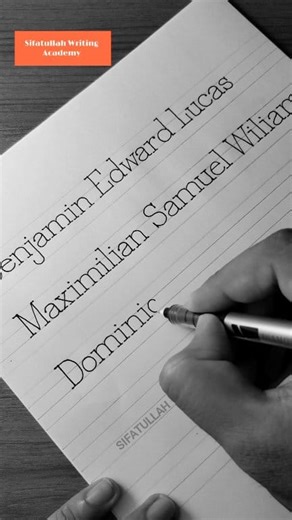 Sifatullah Writing
Academy
Benjamin Edward Lucas
Maximilian Samuel Wiliam
Dominic
SIFATULLAH